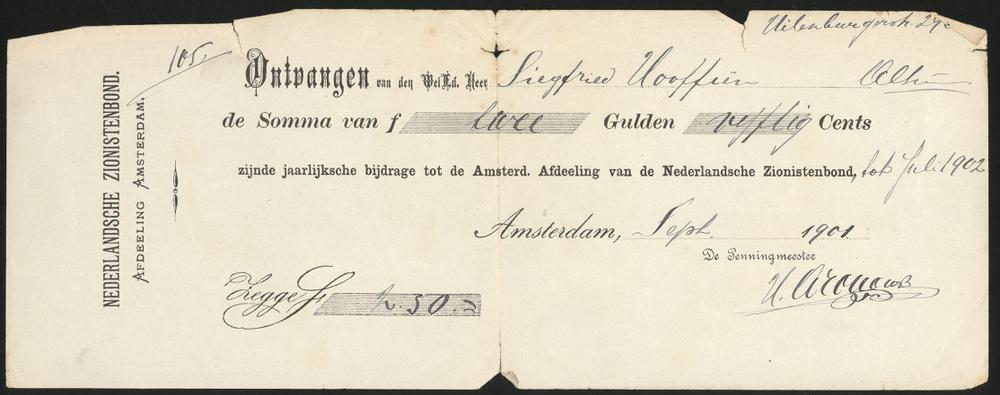 NEDERLANDSCHE ZIONISTENBOND.
AFDEELING AMSTERDAM.
105,
Uilenburgerstr. 29c
Ontvangen van den WelEd. Heer Siegfried Hooffien
de Somma van f twee Gulden vijftig Cents
zijnde jaarlijksche bijdrage tot de Amsterd. Afdeeling van de Nederlandsche Zionistenbond, tot Juli 1902
Amsterdam, Sept. 1901
De Penningmeester
Zegge f 2.50.-